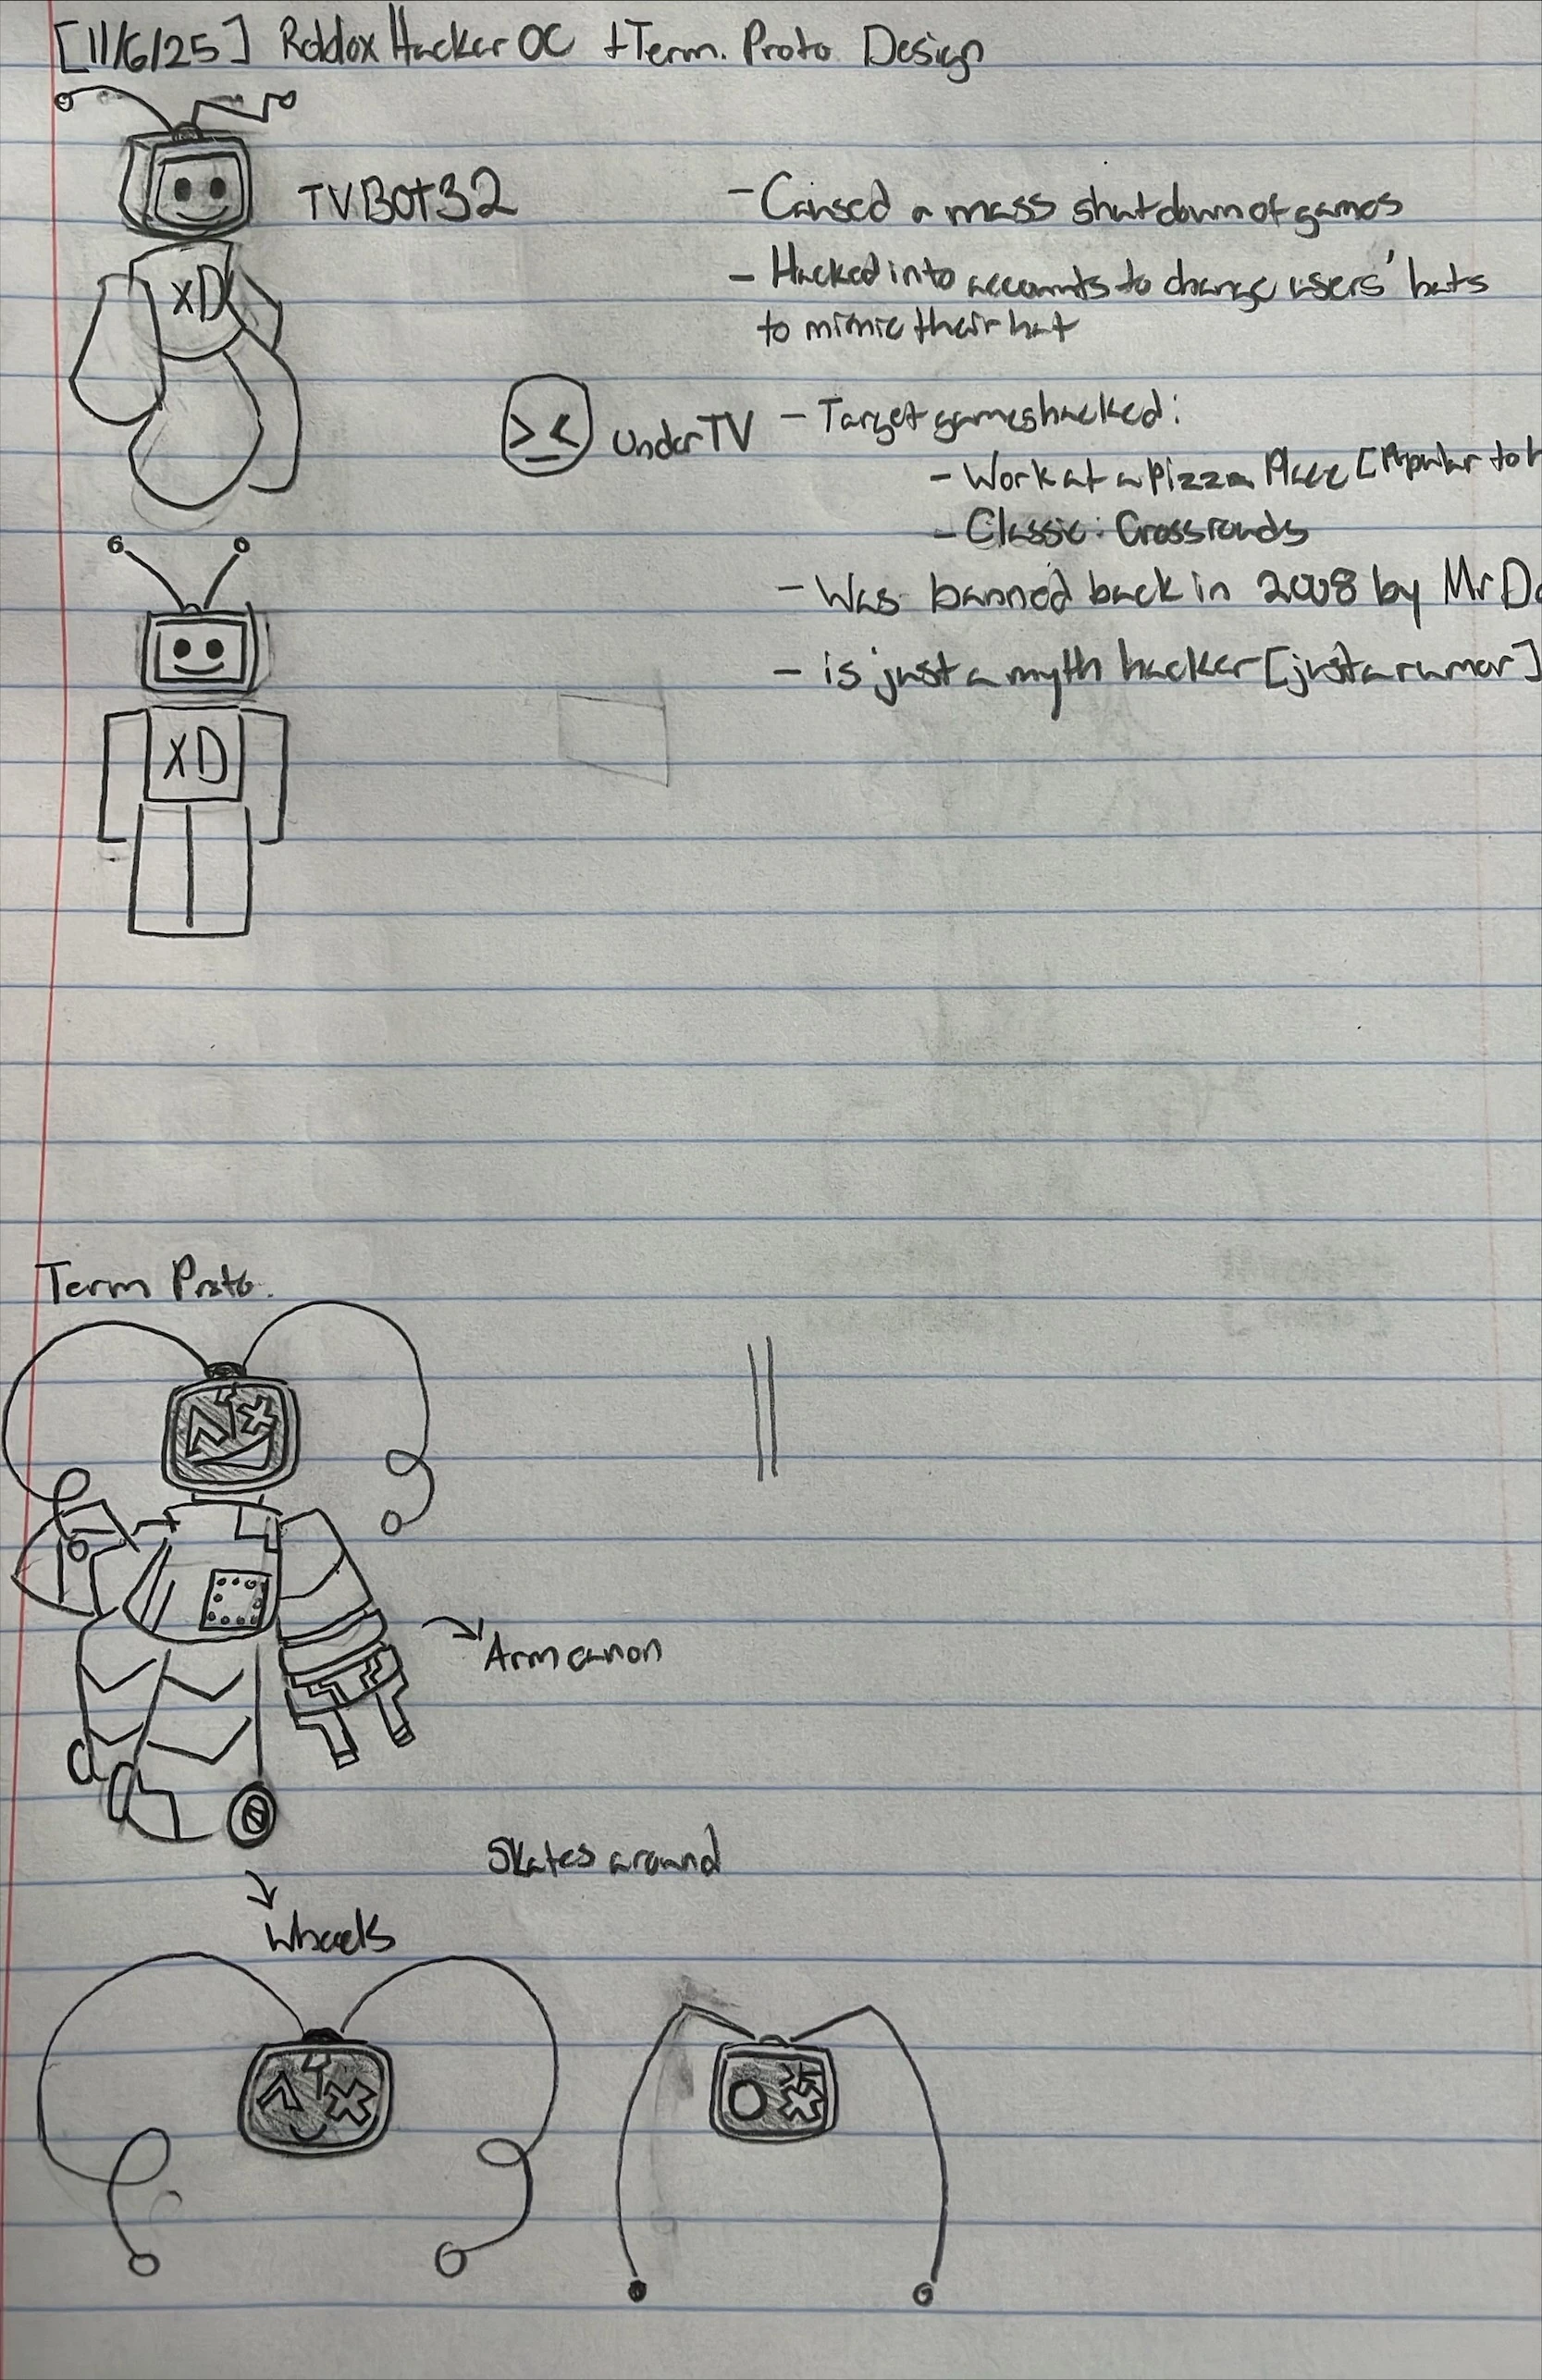 [11/6/25] Roblox Hacker OC + Term. Proto Design
TVBOT32
XD
- Caused a mass shutdown of games
- Hacked into accounts to change users' hats
to mimic their hat
>_< Under TV
- Target games hacked:
- Work at a Pizza Place [Popular to
- Classic: Crossroads
- Was banned back in 2008 by Mr
- is just a myth hacker [just a rumor]
XD
Term Proto.
Arm canon
Skates around
Wheels